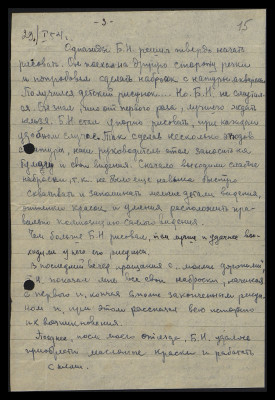 - 3 -
15
29/VI 54 г.
Однажды Б.Н. решил твердо начать
рисовать. Он поехал на другую сторону речки
и попробовал сделать набросок с натуры акварелью.
Получился детский рисунок.... Но Б.Н. не смутился.
Он знал, что от первого раза лучшего ждать
нельзя. Б.Н. стал упорно рисовать, при каждом
удобном случае. Так сделав несколько этюдов
с натуры, наш руководитель стал заносить на
бумагу и свои видения. Сначала выходили слабые
наброски, т.к. не было еще навыка быстро
схватывать и запоминать мелкие детали видения,
оттенков красок и умения расположить пра-
вильно композицию самого видения.
Чем больше Б.Н. рисовал, тем лучше и удачнее вы-
ходили у него его рисунки.
В последний вечер прощания с „моим дорогим"
он показал мне все свои наброски, начиная
с первого и, кончая вполне законченным рисун-
ком и, при этом рассказал всю историю
их возникновения.
Позднее, после моего отъезда, Б.Н. удалось
приобрести масляные краски и работать
с ними.